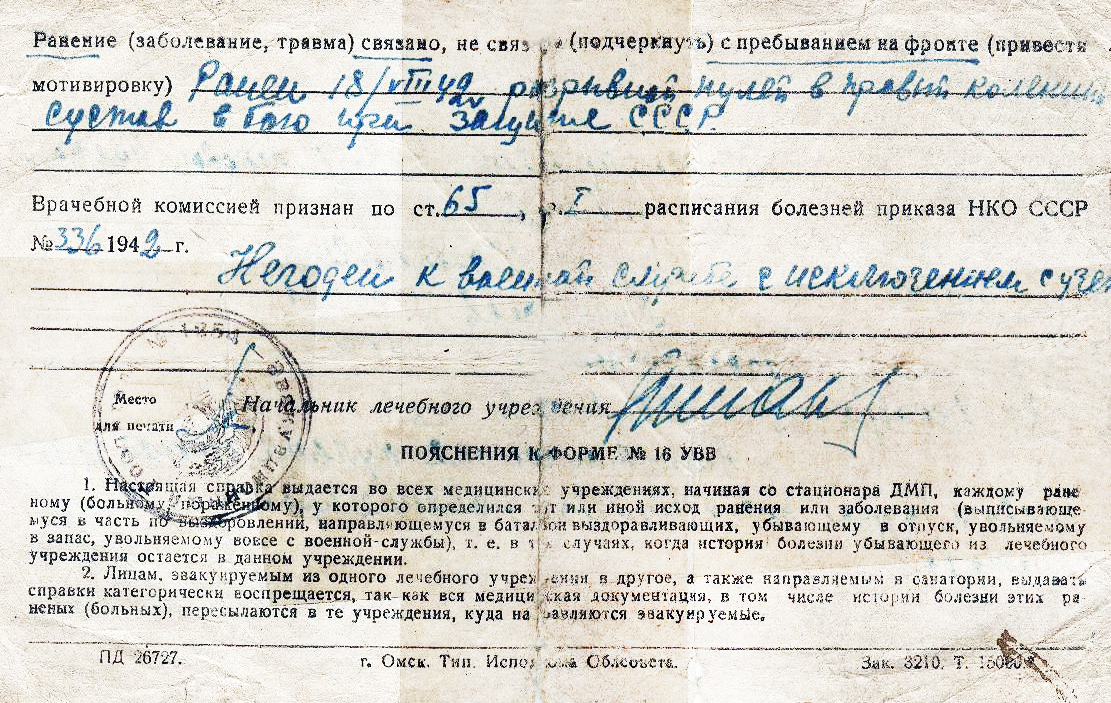 Ранение (заболевание, травма) связано, не связ (подчеркнуть) с пребыванием на фронте (привести
мотивировку) Ранен 18/VIII 42 разрывной пулей в правый коленный
сустав в бою при защите СССР.
Врачебной комиссией признан по ст. 65, I расписания болезней приказа НКО СССР
№ 336 1942 г.
Негоден к военной службе с исключением с учета
Место
для печати
Начальник лечебного учреждения
ПОЯСНЕНИЯ К ФОРМЕ № 16 УВВ
1. Настоящая справка выдается во всех медицинских учреждениях, начиная со стационара ДМП, каждому ране-
ному (больному, пораженному), у которого определился тот или иной исход ранения или заболевания (выписывающе-
муся в часть по выздоровлении, направляющемуся в батальон выздоравливающих, убывающему в отпуск, увольняемому
в запас, увольняемому вовсе с военной-службы), т. е. в тех случаях, когда история болезни убывающего из лечебного
учреждения остается в данном учреждении.
2. Лицам, эвакуируемым из одного лечебного учреждения в другое, а также направляемым в санатории, выдавать
справки категорически воспрещается, так-как вся медицинская документация, в том числе истории болезни этих ра-
неных (больных), пересылаются в те учреждения, куда направляются эвакуируемые.
ПД 26727. г. Омск. Тип. Исполкома Облсовета. Зак. 3210. Т. 15000